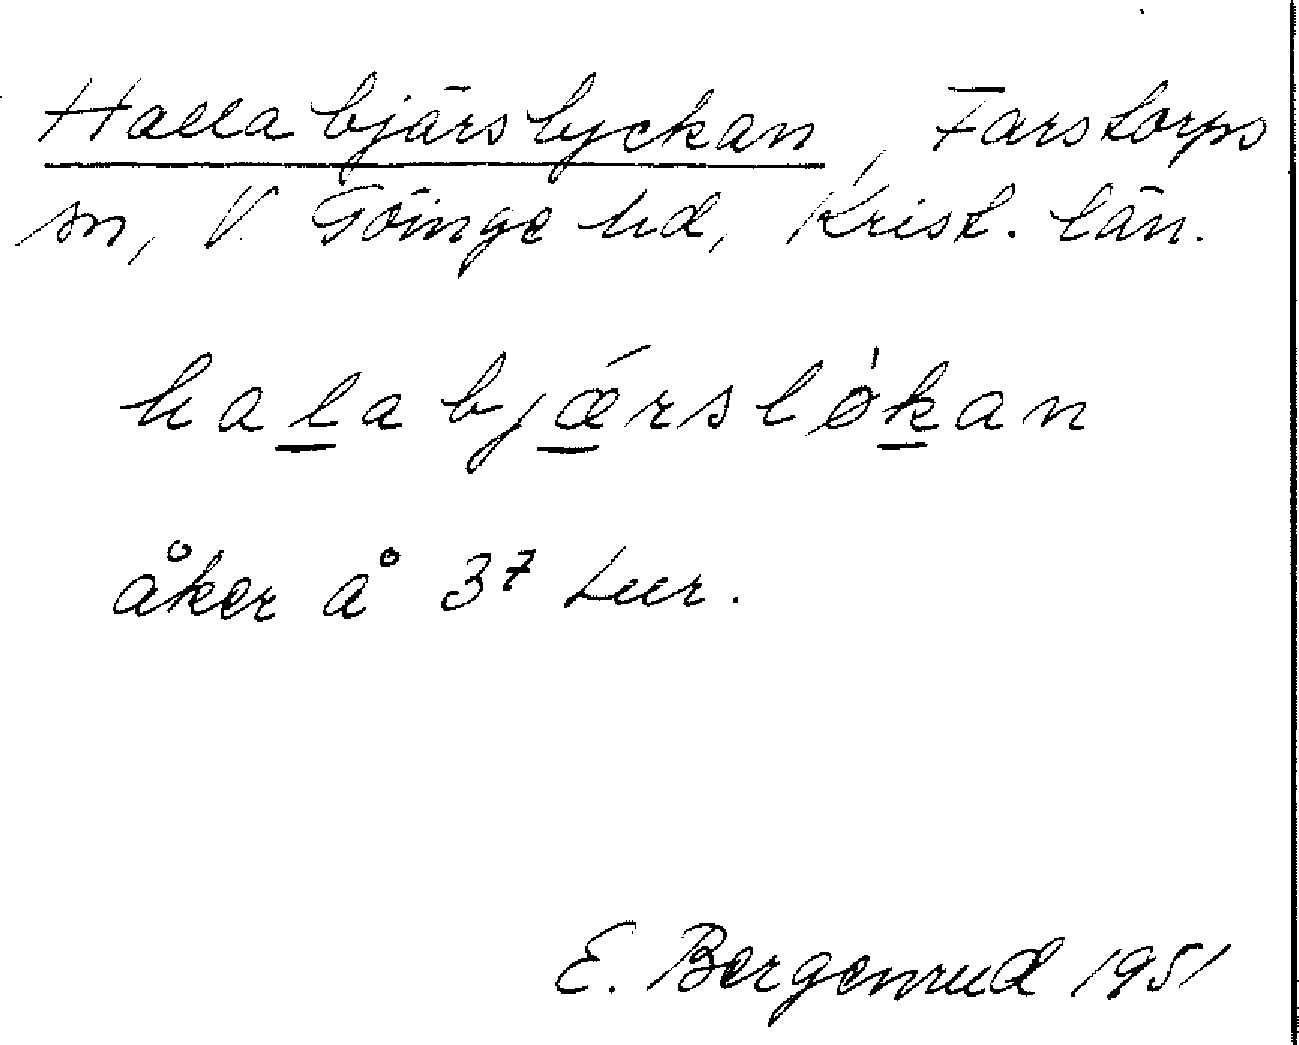 Hallabjärslyckan, Farstorps
sn, V. Göinge hd, Krist. län.
halabjǽrslókan
åker å 37 Lur.
E. Bergenrud 1951